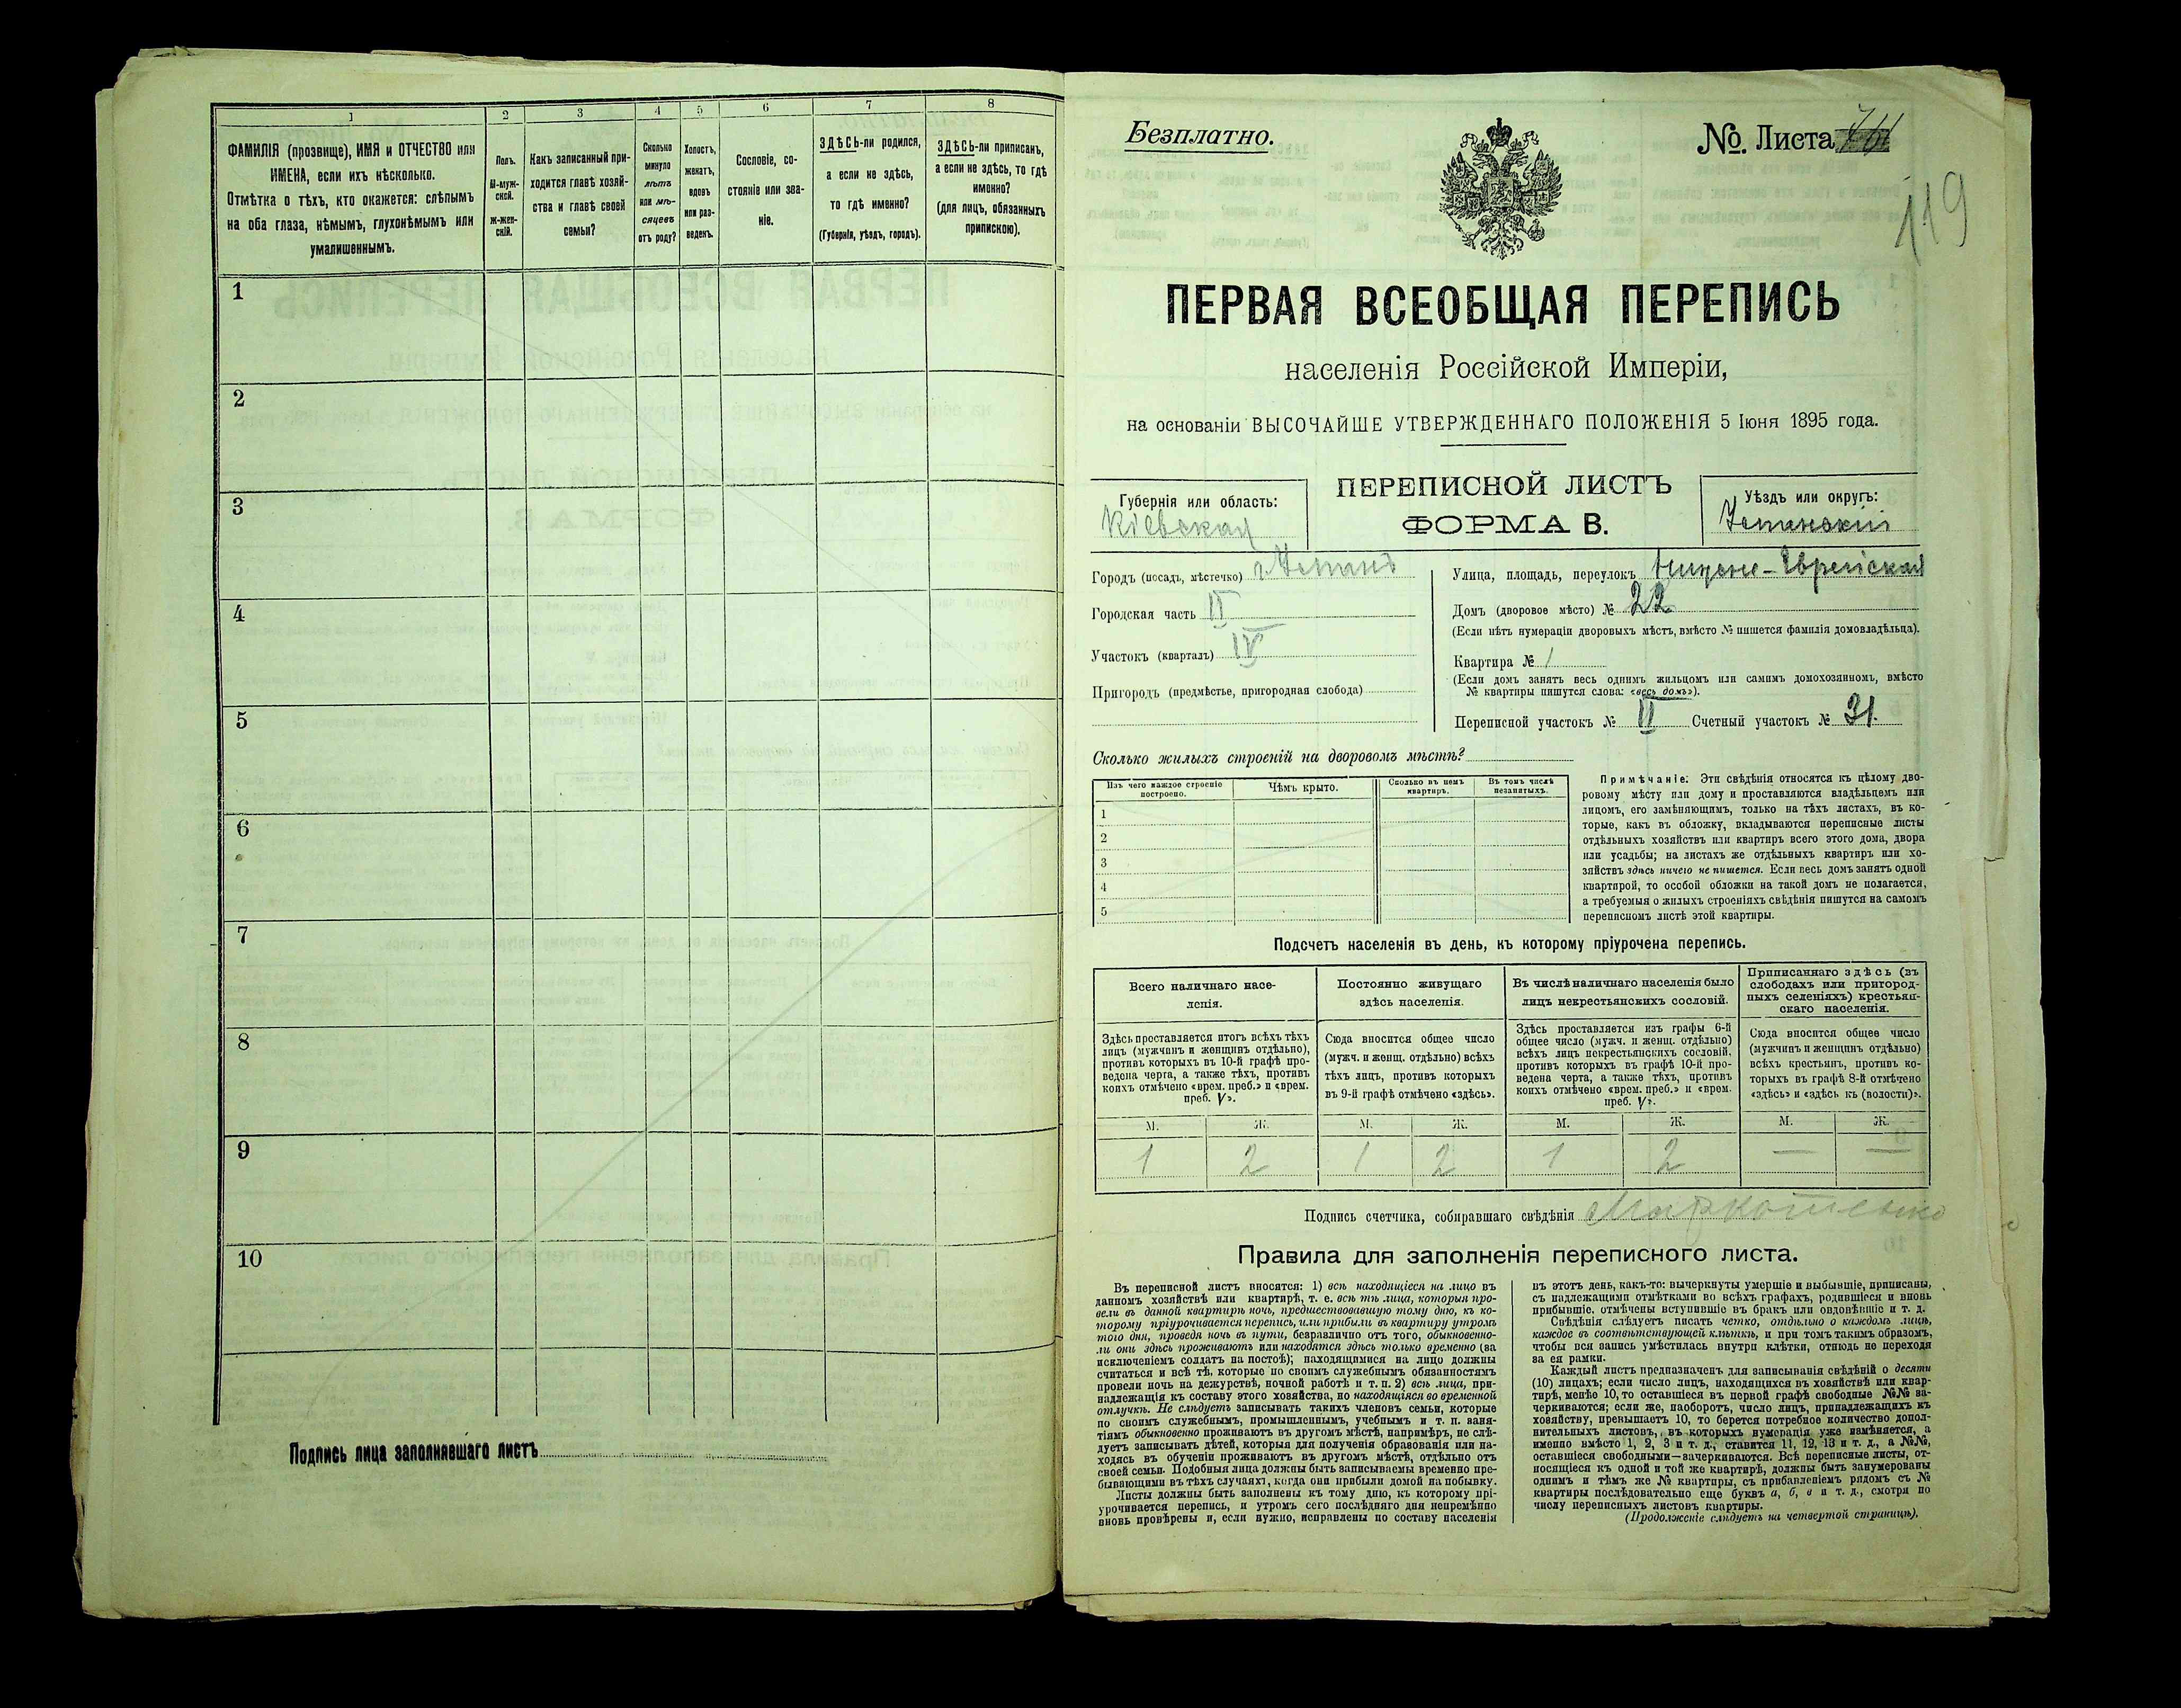 1 2 3 4 5 6 7 8
ФАМИЛІЯ (прозвище), ИМЯ и ОТЧЕСТВО или
ИМЕНА, если ихъ нѣсколько.
Отмѣтка о тѣхъ, кто окажется: слѣпымъ
на оба глаза, нѣмымъ, глухонѣмымъ или
умалишеннымъ.
Полъ.
М-муж-
ской.
Ж-жен-
скій.
Какъ записанный при-
ходится главѣ хозяй-
ства и главѣ своей
семьи?
Сколько
минуло
лѣтъ
или мѣ-
сяцевъ
отъ роду?
Холостъ,
женатъ,
вдовъ
или раз-
веденъ.
Сословіе, со-
стояніе или зва-
ніе.
ЗДѢСЬ-ли родился,
а если не здѣсь,
то гдѣ именно?
(Губернія, уѣздъ, городъ).
ЗДѢСЬ-ли приписанъ,
а если не здѣсь, то гдѣ
именно?
(для лицъ, обязанныхъ
припискою).
1
2
3
4
5
6
7
8
9
10
Подпись лица заполнявшаго листъ
Безплатно.
№. Листа
119
ПЕРВАЯ ВСЕОБЩАЯ ПЕРЕПИСЬ
населенія Россійской Имперіи,
на основаніи ВЫСОЧАЙШЕ УТВЕРЖДЕННАГО ПОЛОЖЕНІЯ 5 Іюня 1895 года.
Губернія или область:
Кіевская
ПЕРЕПИСНОЙ ЛИСТЪ
ФОРМА В.
Уѣздъ или округъ:
Уманскій
Городъ (посадъ, мѣстечко) г. Умань
Городская часть II
Участокъ (кварталъ) IV
Пригородъ (предмѣстье, пригородная слобода)
Улица, площадь, переулокъ Нижне-Еврейская
Домъ (дворовое мѣсто) № 22
(Если нѣтъ нумераціи дворовыхъ мѣстъ, вмѣсто № пишется фамилія домовладѣльца).
Квартира № 1
(Если домъ занятъ весь однимъ жильцомъ или самимъ домохозяиномъ, вмѣсто
№ квартиры пишутся слова: «весь домъ»).
Переписной участокъ № II Счетный участокъ № 31.
Сколько жилыхъ строеній на дворовомъ мѣстѣ?
Изъ чего каждое строеніе
построено.
Чѣмъ крыто.
Сколько въ немъ
квартиръ.
Въ томъ числѣ
незанятыхъ.
1
2
3
4
5
Примѣчаніе: Эти свѣдѣнія относятся къ цѣлому дво-
ровому мѣсту или дому и проставляются владѣльцемъ или
лицомъ, его замѣняющимъ, только на тѣхъ листахъ, въ ко-
торые, какъ въ обложку, вкладываются переписные листы
отдѣльныхъ хозяйствъ или квартиръ всего этого дома, двора
или усадьбы; на листахъ же отдѣльныхъ квартиръ или хо-
зяйствъ здѣсь ничего не пишется. Если весь домъ занятъ одной
квартирой, то особой обложки на такой домъ не полагается,
а требуемыя о жилыхъ строеніяхъ свѣдѣнія пишутся на самомъ
переписномъ листѣ этой квартиры.
Подсчетъ населенія въ день, къ которому пріурочена перепись.
Всего наличнаго насе-
ленія.
Постоянно живущаго
здѣсь населенія.
Въ числѣ наличнаго населенія было
лицъ некрестьянскихъ сословій.
Приписаннаго здѣсь (въ
слободахъ или пригород-
ныхъ селеніяхъ) крестьян-
скаго населенія.
Здѣсь проставляется итогъ всѣхъ тѣхъ
лицъ (мужчинъ и женщинъ отдѣльно),
противъ которыхъ въ 10-й графѣ про-
ведена черта, а также тѣхъ, противъ
коихъ отмѣчено «врем. преб.» и «врем.
преб. V».
Сюда вносится общее число
(мужч. и женщ. отдѣльно) всѣхъ
тѣхъ лицъ, противъ которыхъ
въ 9-й графѣ отмѣчено «здѣсь».
Здѣсь проставляется изъ графы 6-й
общее число (мужч. и женщ. отдѣльно)
всѣхъ лицъ некрестьянскихъ сословій,
противъ которыхъ въ графѣ 10-й про-
ведена черта, а также тѣхъ, противъ
коихъ отмѣчено «врем. преб.» и «врем.
преб. V».
Сюда вносится общее число
(мужчинъ и женщинъ отдѣльно)
всѣхъ крестьянъ, противъ ко-
торыхъ въ графѣ 8-й отмѣчено
«здѣсь» и «здѣсь къ (волости)».
М. Ж. М. Ж. М. Ж. М. Ж.
1 2 1 2 1 2 — —
Подпись счетчика, собиравшаго свѣдѣнія
Правила для заполненія переписного листа.
Въ переписной листъ вносятся: 1) всѣ находящіеся на лицо въ
данномъ хозяйствѣ или квартирѣ, т. е. всѣ тѣ лица, которыя про-
вели въ данной квартирѣ ночь, предшествовавшую тому дню, къ ко-
торому пріурочивается перепись, или прибыли въ квартиру утромъ
того дня, проведя ночь въ пути, безразлично отъ того, обыкновенно-
ли они здѣсь проживаютъ или находятся здѣсь только временно (за
исключеніемъ солдатъ на постоѣ); находящимися на лицо должны
считаться и всѣ тѣ, которые по своимъ служебнымъ обязанностямъ
провели ночь на дежурствѣ, ночной работѣ и т. п. 2) всѣ лица, при-
надлежащія къ составу этого хозяйства, но находящіяся во временной
отлучкѣ. Не слѣдуетъ записывать такихъ членовъ семьи, которые
по своимъ служебнымъ, промышленнымъ, учебнымъ и т. п. заня-
тіямъ обыкновенно проживаютъ въ другомъ мѣстѣ, напримѣръ, не слѣ-
дуетъ записывать дѣтей, которыя для полученія образованія или на-
ходясь въ обученіи проживаютъ въ другомъ мѣстѣ, отдѣльно отъ
своей семьи. Подобныя лица должны быть записываемы временно пре-
бывающими въ тѣхъ случаяхъ, когда они прибыли домой на побывку.
Листы должны быть заполнены къ тому дню, къ которому прі-
урочивается перепись, и утромъ сего послѣдняго дня непремѣнно
вновь провѣрены и, если нужно, исправлены по составу населенія
въ этотъ день, какъ-то: вычеркнуты умершіе и выбывшіе, приписаны,
съ надлежащими отмѣтками во всѣхъ графахъ, родившіеся и вновь
прибывшіе, отмѣчены вступившіе въ бракъ или овдовѣвшіе и т. д.
Свѣдѣнія слѣдуетъ писать четко, отдѣльно о каждомъ лицѣ,
каждое въ соотвѣтствующей клѣткѣ, и при томъ такимъ образомъ,
чтобы вся запись умѣстилась внутри клѣтки, отнюдь не переходя
за ея рамки.
Каждый листъ предназначенъ для записыванія свѣдѣній о десяти
(10) лицахъ; если число лицъ, находящихся въ хозяйствѣ или квар-
тирѣ, менѣе 10, то оставшіеся въ первой графѣ свободные №№ за-
черкиваются; если же, наоборотъ, число лицъ, принадлежащихъ къ
хозяйству, превышаетъ 10, то берется потребное количество допол-
нительныхъ листовъ, въ которыхъ нумерація уже измѣняется, а
именно вмѣсто 1, 2, 3 и т. д., ставится 11, 12, 13 и т. д., а №№,
оставшіеся свободными—зачеркиваются. Всѣ переписные листы, от-
носящіеся къ одной и той же квартирѣ, должны быть занумерованы
однимъ и тѣмъ же № квартиры, съ прибавленіемъ рядомъ съ №
квартиры послѣдовательно еще буквъ а, б, в и т. д., смотря по
числу переписныхъ листовъ квартиры.
(Продолженіе слѣдуетъ на четвертой страницѣ).